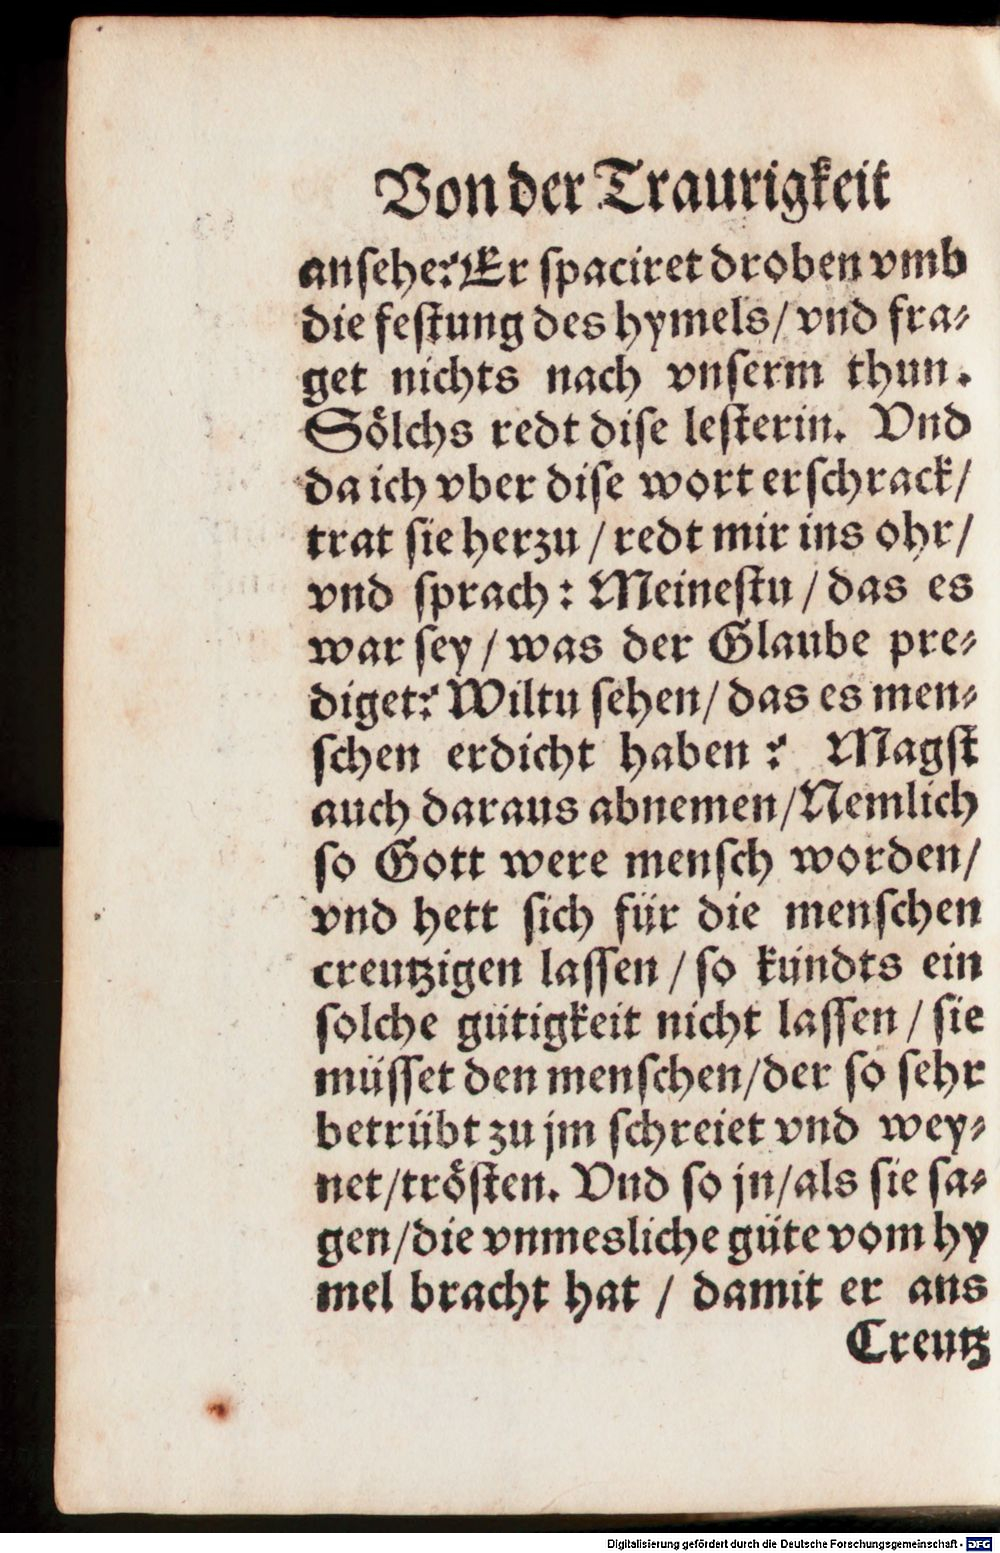 Von der Traurigkeit
anſehe? Er ſpaciret droben vmb
die feſtung des hymels / vnd fra⸗
get nichts nach vnſerm thun.
Sölchs redt diſe leſterin. Vnd
da ich vber diſe wort erſchrack /
trat ſie herzu / redt mir ins ohr /
vnd ſprach: Meineſtu / das es
war ſey / was der Glaube pre⸗
diget? Wiltu ſehen / das es men⸗
ſchen erdicht haben? Magſt
auch daraus abnemen / Nemlich
ſo Gott were menſch worden /
vnd hett ſich für die menſchen
creutzigen laſſen / ſo kündts ein
ſolche gütigkeit nicht laſſen / ſie
müſſet den menſchen / der ſo ſehr
betrübt zu jm ſchreiet vnd wey⸗
net / tröſten. Vnd ſo jn / als ſie ſa⸗
gen / die vnmesliche güte vom hy
mel bracht hat / damit er ans
Creutz
Digitalisierung gefördert durch die Deutsche Forschungsgemeinschaft - DFG